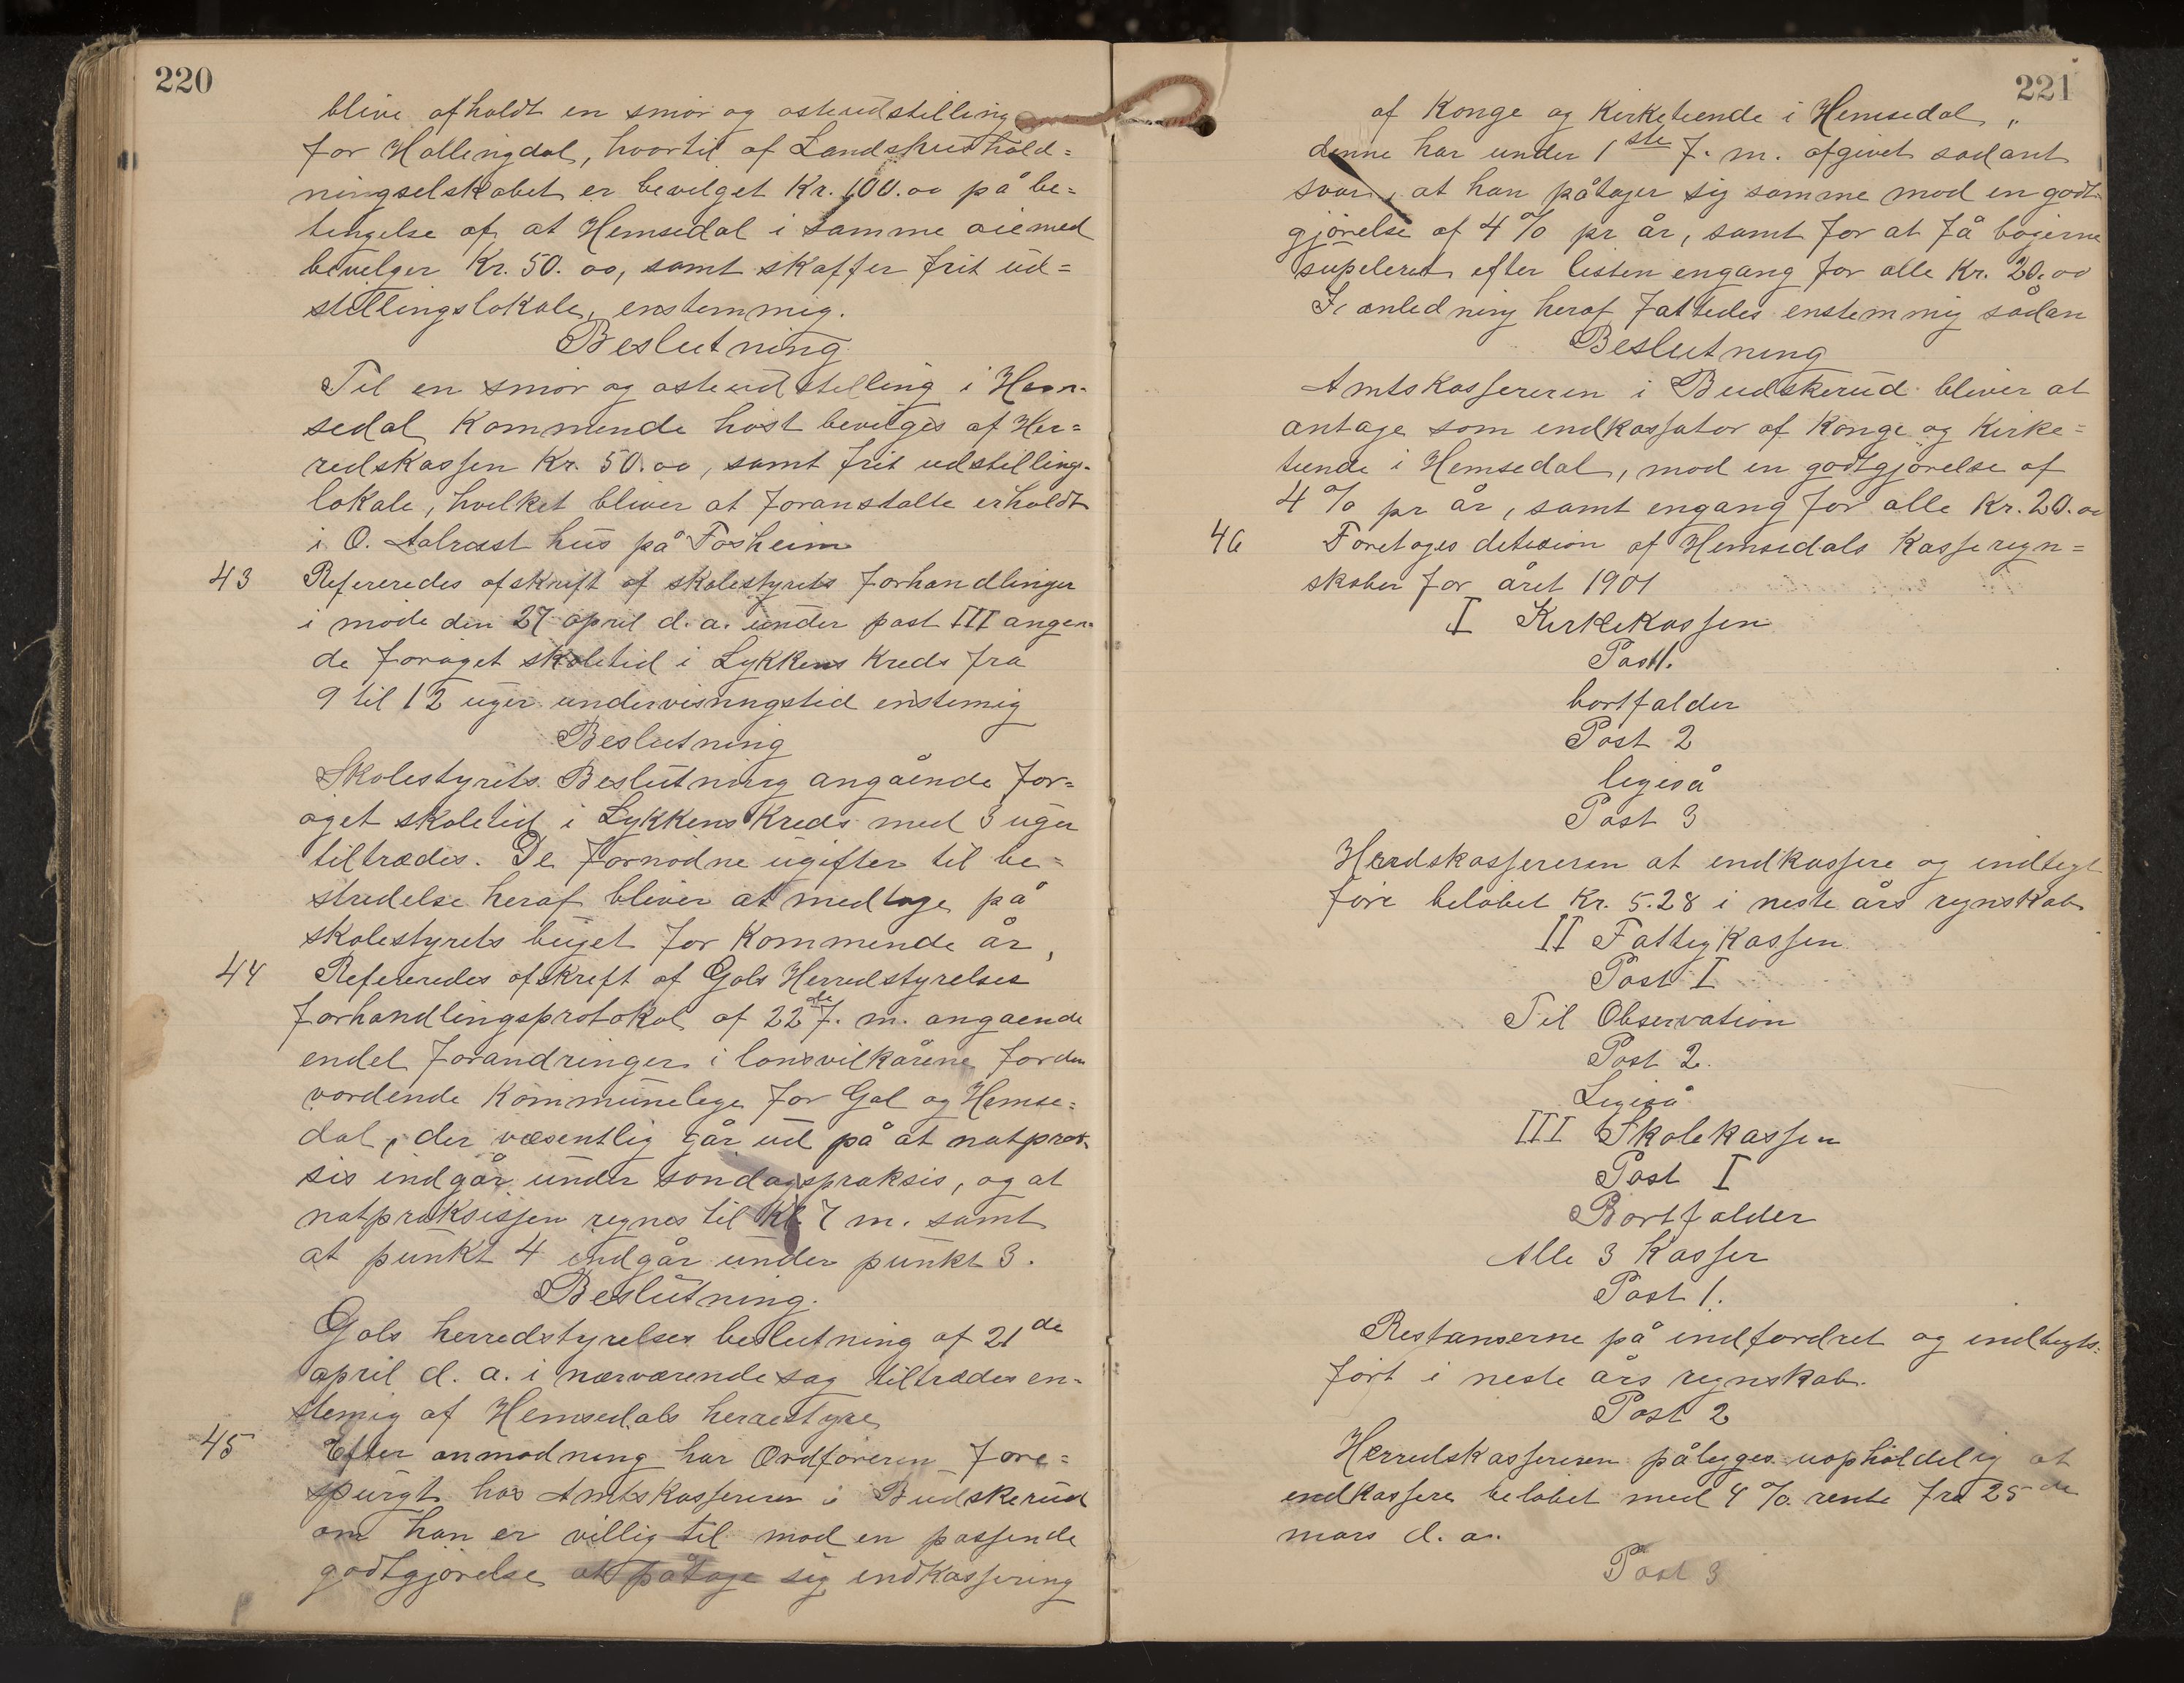 220
blive afholdt en smör og osteudstilling
for Hallingdal, hvortil af Landshushold=
ningselskabet er bevilget Kr. 100.00 på be=
tingelse af at Hemsedal i samme öiemed
bevilger Kr. 50.00, samt skaffer frit ud=
stillingslokale, enstemmig.
Beslutning
Til en smör og osteudstilling i Hem-
sedal kommende höst bevilges af Her=
redskassen Kr. 50.00, samt frit udstillings-
lokale, hvilket bliver at foranstalte erholdt
i O. hus på Fosheim
43 Refereredes afskrift af skolestyrets forhandlinger
i möde den 27 april d. a. under post III angen-
de foröget skoletid i Lykkens Kreds fra
9 til 12 uger undervisningstid enstemig
Beslutning
Skolestyrets Beslutning angående for=
öget skoletid i Lykkens Kreds med 3 uger
tiltrædes. De fornödne ugifter til be=
stridelse heraf bliver at medtage på
skolestyrets buget for kommende år,
44 Refereredes afskrift af Gols Herredstyrelses
forhandlingsprotokol af 22de f. m. angaende
endel forandringer i lönsvilkårene for den
vordende Kommunelege for Gol og Hemse=
dal, der væsentlig går ud på at natprak-
sis indgår under söndagspraksis, og at
natpraksissen regnes til Kl. 7 m. samt
at punkt 4 indgår under punkt 3.
Beslutning.
Gols herredstyrelses beslutning af 21de
april d. a. i nærværende sag tiltrædes en=
stemig af Hemsedals herrestyre
45 Efter anmodning har Ordföreren fore=
spurgt hos Amtskassereren i Budskerud
om han er villig til mod en passende
godtgjörelse at påtage sig indkassering
221
af Konge og Kirketiende i Hemsedal „
denne har under 1ste f. m. afgivet sadant
svar, at han påtager sig samme mod en godt-
gjörelse af 4 % pr år, samt for at få bögerne
supeleret efter listen engang for alle Kr. 20.00
I anledning heraf fattedes enstemmig sådan
Beslutning
Amtskassereren i Budskerud bliver at
antage som indkassator af Konge og Kirke=
tiende i Hemsedal, mod en godtgjörelse af
4 % pr år, samt engang for alle Kr. 20.00
46 Foretoges desision af Hemsedals Kasseregn=
skaber for året 1901
I Kirkekassen
Post 1.
bortfalder
Post 2
ligeså
Post 3
Herredskassereren at indkassere og indtegt
före belöbet Kr. 5.28 i neste års regnskab
II Fattigkassen
Post I
Til Observation
Post 2.
Ligeså
III Skolekassen
Post I
Bortfalder
Alle 3 Kasser
Post 1.
Restanserne på indfordret og indtegts=
fört i neste års regnskab.
Post 2
Herredskassereren pålegges uopholdelig at
indkassere belöbet med 4 % rente fra 25de
mars d. a.
Post 3